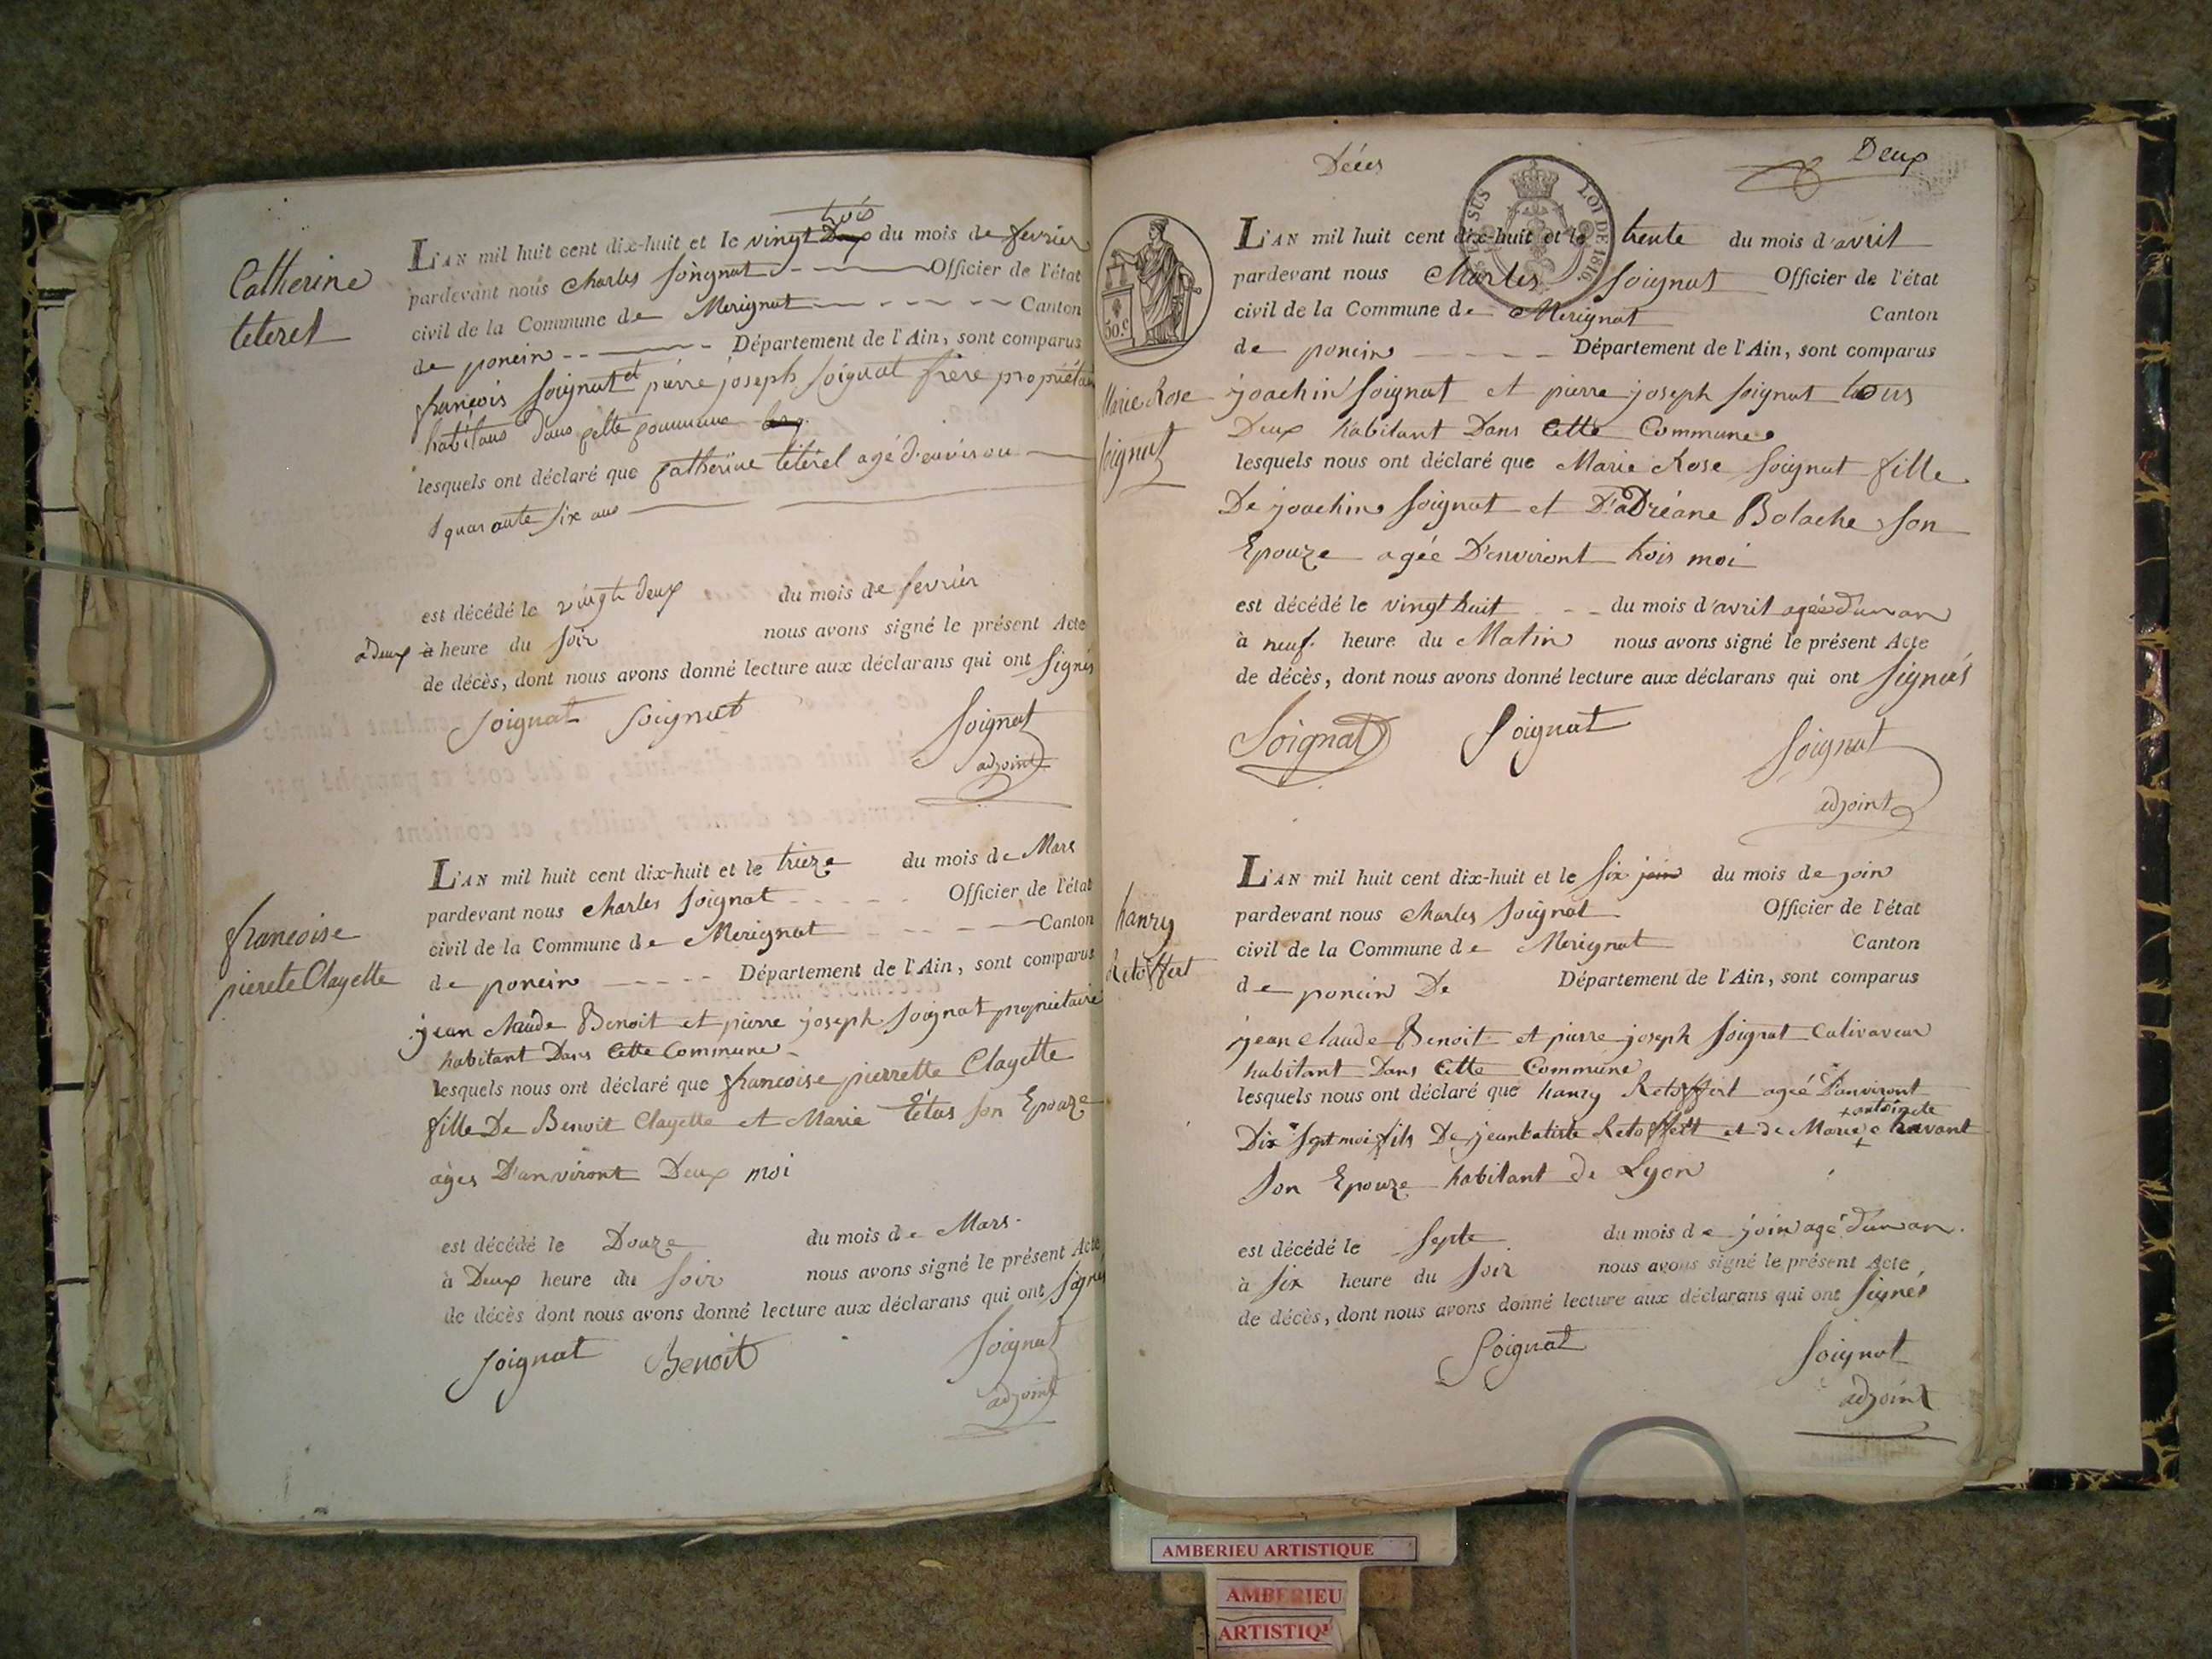 Catherine
teteret
L'AN mil huit cent dix-huit et le vingt trois du mois de fevrier
pardevant nous Charles Soignat Officier de l'état
civil de la Commune de Merignat Canton
de poncin Département de l'Ain, sont comparus
francois Soignat et pierre joseph Soignat frere propriétaire
habitans dans cette commune
lesquels ont déclaré que Catherine teterel agé d'environ
quarante six ans
est décédé le vingt deux du mois de fevrier
à deux heure du soir nous avons signé le présent Acte
de décès, dont nous avons donné lecture aux déclarans qui ont Signés
Soignat Soignat Soignat
adjoint
francoise
pierete Clayette
L'AN mil huit cent dix-huit et le trieze du mois de Mars
pardevant nous Charles Soignat Officier de l'état
civil de la Commune de Merignat Canton
de poncin Département de l'Ain, sont comparus
jean Claude Benoit et pierre joseph Soignat propriétaire
habitant Dans Cette Commune
lesquels nous ont déclaré que francoise pierrette Clayette
fille De Benoit Clayette et Marie Tétas son Epouze
ages D'anviront Deux moi
est décédé le Douze du mois de Mars.
à Deux heure du Soir nous avons signé le présent Acte
de décès dont nous avons donné lecture aux déclarans qui ont Signés
Soignat Benoit Soignat
adjoint
Décés
Deux
SUS LOI DE 1816
50.c
L'AN mil huit cent dix-huit et le trente du mois d'avril
pardevant nous Charles Soignat Officier de l'état
civil de la Commune de Merignat Canton
de poncin Département de l'Ain, sont comparus
Marie Rose
Soignat
joachin Soignat et pierre joseph Soignat tous
Deux habitant Dans Cette Commune
lesquels nous ont déclaré que Marie Rose Soignat fille
De joachin Soignat et D'aDréane Bolache Son
Epouze agée D'environt trois moi
est décédé le vingt huit du mois d'avril agée d'un an
à neuf heure du Matin nous avons signé le présent Acte
de décès, dont nous avons donné lecture aux déclarans qui ont Signés
Soignat Soignat Soignat
adjoint
hanry
Retoffert
L'AN mil huit cent dix-huit et le Six join du mois de join
pardevant nous Charles Soignat Officier de l'état
civil de la Commune de Merignat Canton
de poncin De Département de l'Ain, sont comparus
jean Claude Benoit et pierre joseph Soignat Cultivateur
habitant Dans Cette Commune
lesquels nous ont déclaré que hanry Retoffert ageé D'anviront
Dix Sept moi fils De jeanbatiste Retoffert et de Marie antoinete chavant
Son Epouze habitant de Lyon
est décédé le Septe du mois de join agé d'un an.
à six heure du Soir nous avons signé le présent Acte,
de décès, dont nous avons donné lecture aux déclarans qui ont Signés
Soignat Soignat
adjoint
AMBERIEU ARTISTIQUE
AMBERIEU
ARTISTIQ